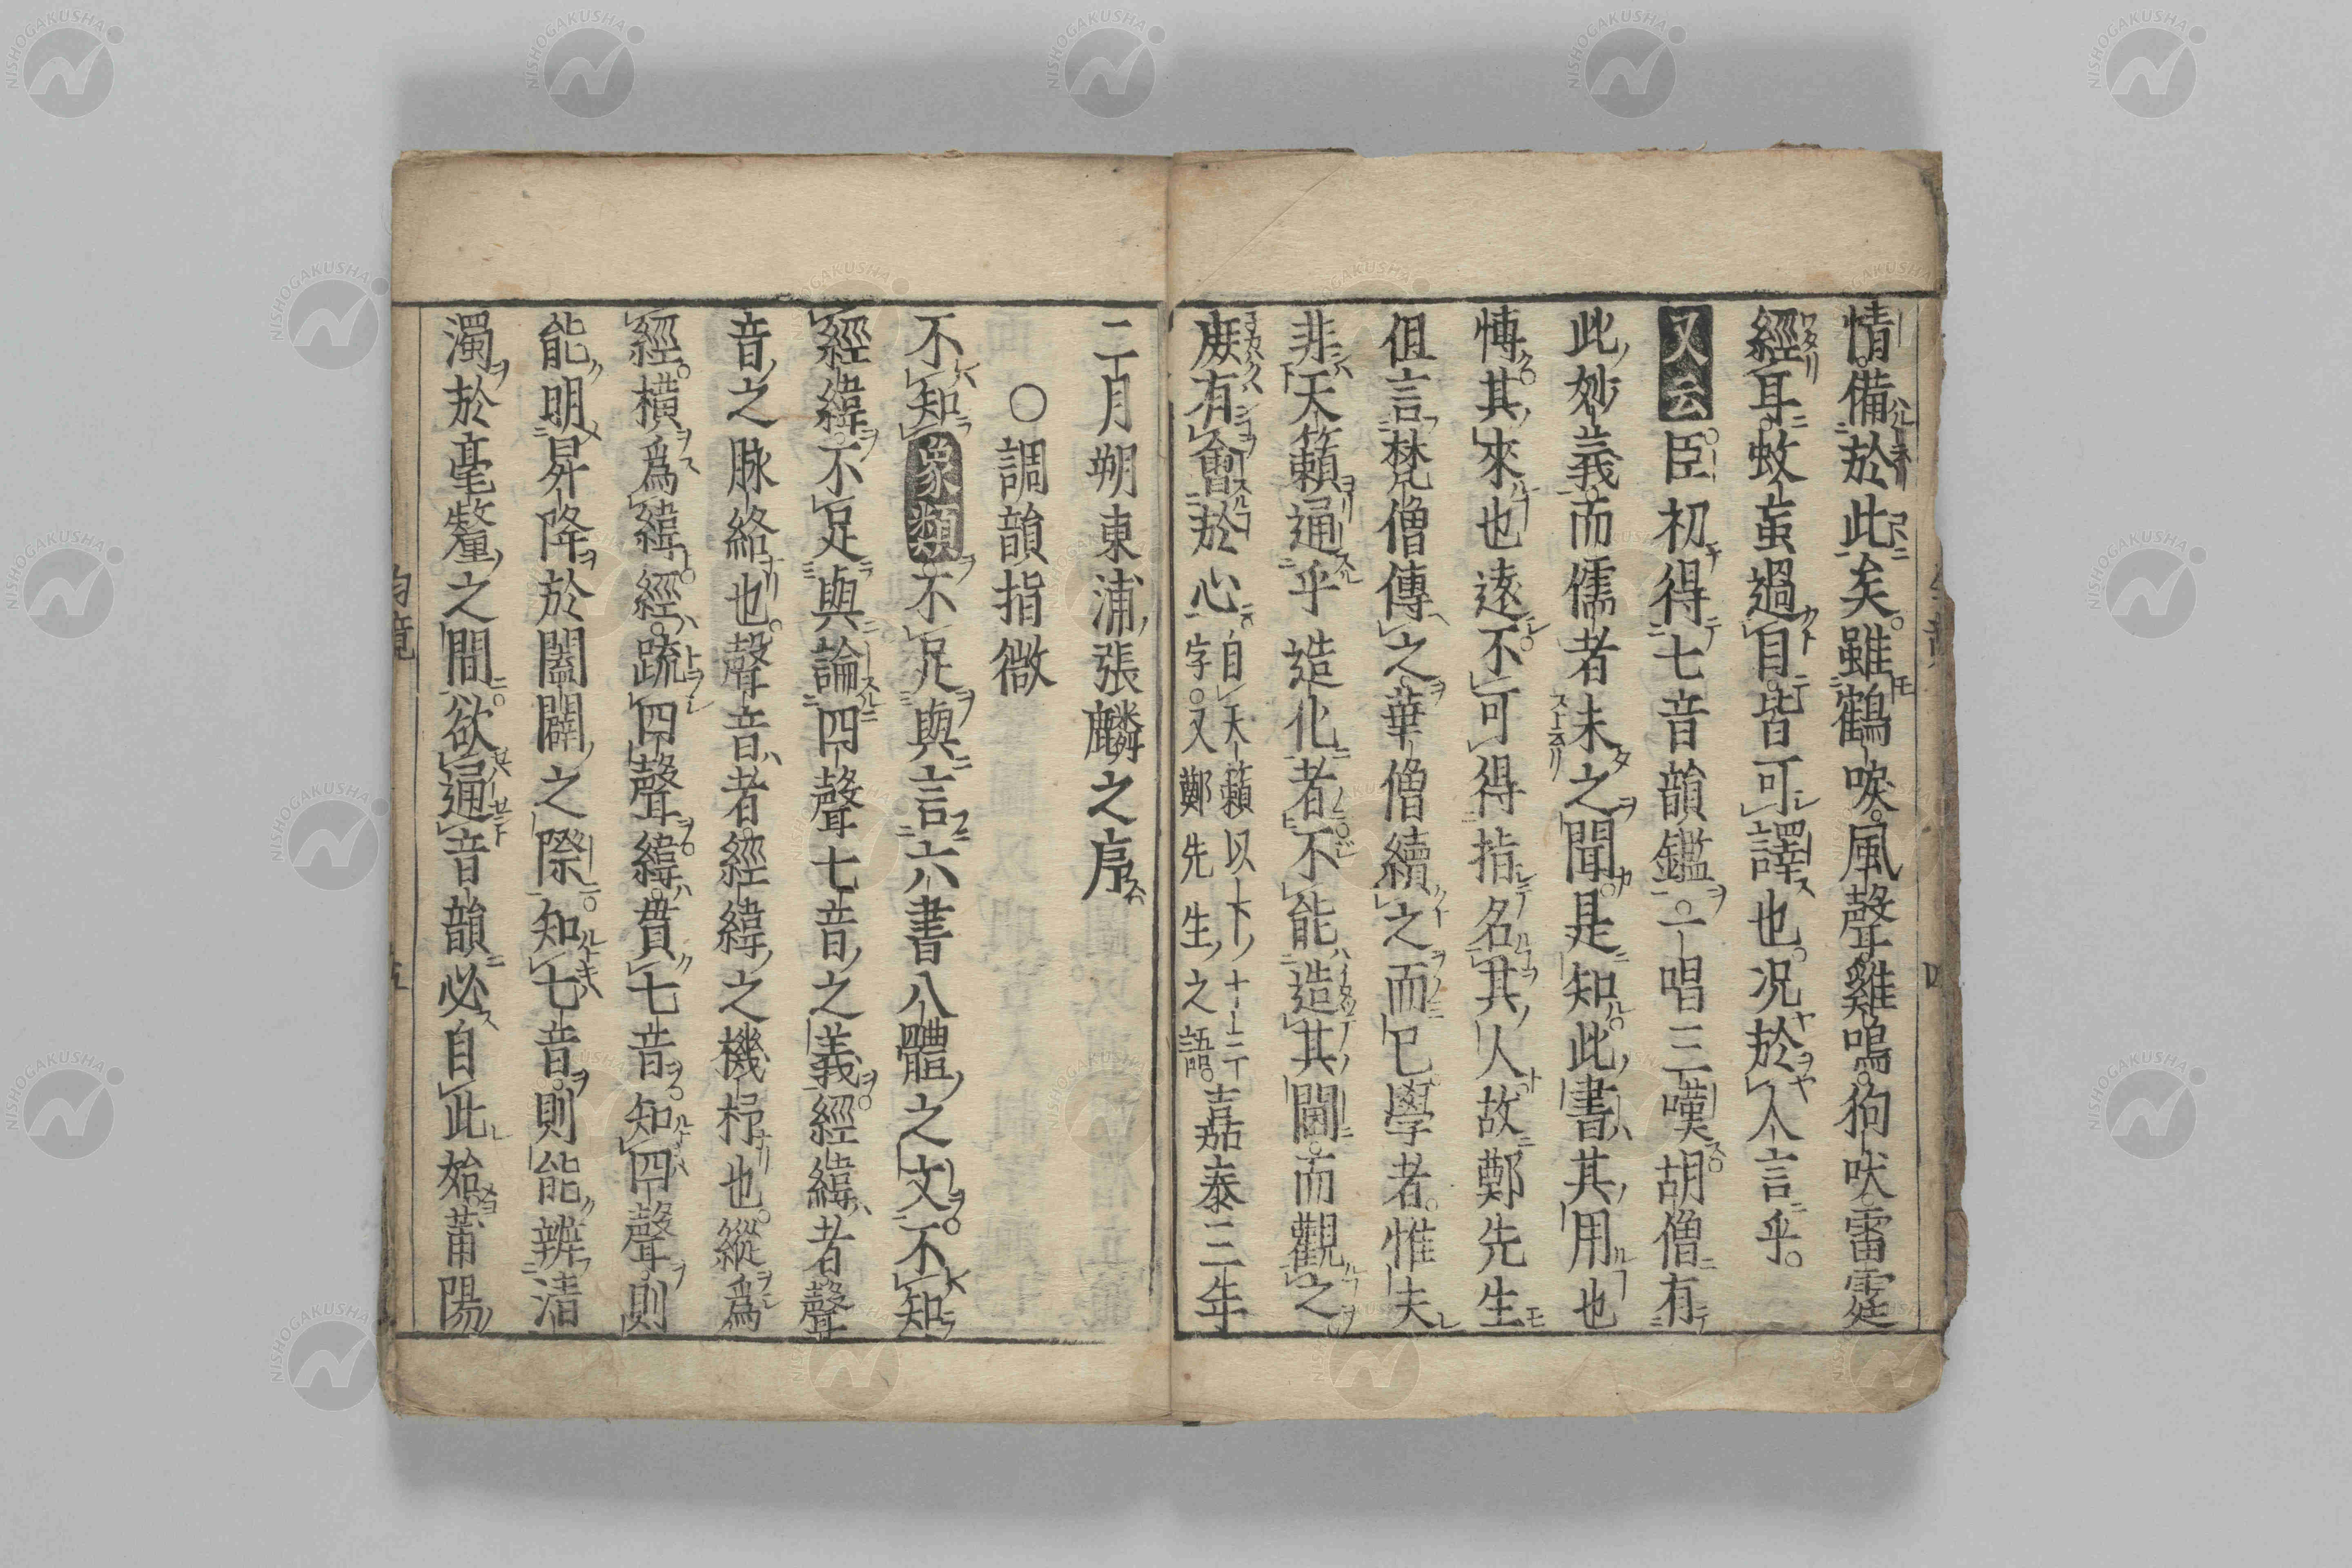 情備於此矣雖鶴唳風聲雞鳴狗吠雷霆
經耳蚊虻過目皆可譯也況於人言乎
又云臣初得七音韻鑑一唱三嘆胡僧有
此妙義而儒者未之聞是知此書其用也
愽其來也遠不可得指名其人故鄭先生
但言梵僧傳之華僧續之而已學者惟夫
非天籟通乎造化者不能造其閫而觀之
庻有會於心自天籟以下十二字又鄭先生之語嘉泰三年
二月朔東浦張麟之序
〇調韻指微
不知象類不足與言六書八體之文不知
經緯不足與論四聲七音之義經緯者聲
音之脉絡也聲音者經緯之機杼也縱爲
經橫爲緯經疏四聲緯貫七音知四聲則
能明昇降於闔闢之際知七音則能辨清
濁於毫釐之間欲通音韻必自此始莆陽
NISHOGAKUSHA